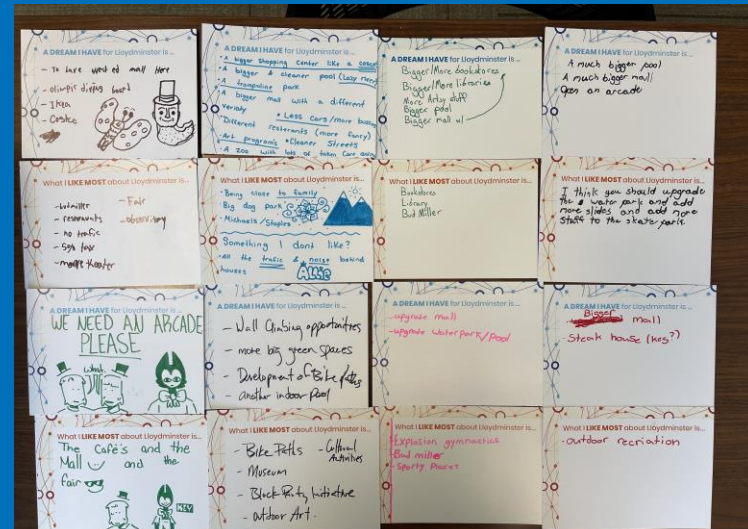 A DREAM I HAVE for Lloydminster is ...
- To have west ed mall Here
- olimpic diving board
- Ikea
- Costco
A DREAM I HAVE for Lloydminster is ...
• A bigger shopping center like a
• A bigger & cleaner pool (Lazy river)
• A trampoline park
• A bigger mall with a different
variety
• Less Cars/more
• Different resterents (more fancy)
• Art programs • Cleaner Streets
• A Zoo with lots of taken Care
A DREAM I HAVE for Lloydminster is ...
Bigger/More bookstores
Bigger/More libraries
More Artsy stuff
Bigger pool
Bigger mall w/
A DREAM I HAVE for Lloydminster is ...
A much bigger pool
A much bigger mall
Open an arcade
What I LIKE MOST about Lloydminster is...
- budmiller
- resterwants
- no trafic
- 5% tax
- theater
- Fair
What I LIKE MOST about Lloydminster is...
• Being close to family
Big dog park
• Michaels/Staples
Something I dont like?
- all the trafic & noise behind
houses
Allie
What I LIKE MOST about Lloydminster is...
Bookstores
Library
Bud Miller
What I LIKE MOST about Lloydminster is...
I think you should upgrade
the water park and add
more slides and add more
stuff to the skate park.
A DREAM I HAVE for Lloydminster is ...
WE NEED AN ARCADE
PLEASE
A DREAM I HAVE for Lloydminster is ...
- Wall Climbing opportunities
- more big green spaces
- Development of Bike paths
- another indoor pool
A DREAM I HAVE for Lloydminster is ...
- upgrade mall
- upgrade waterpark/pool
A DREAM I HAVE for Lloydminster is ...
Bigger mall
- Steak house (keg?)
What I LIKE MOST about Lloydminster is...
The Café's and the
Mall and the
fair
What I LIKE MOST about Lloydminster is...
- Bike Paths
- Cultural
Activities
- Museum
- Block Party Initiative
- outdoor Art.
What I LIKE MOST about Lloydminster is...
- Explosion gymnastics
- Bud miller
- Sporty Places
What I LIKE MOST about Lloydminster is...
- outdoor recriation